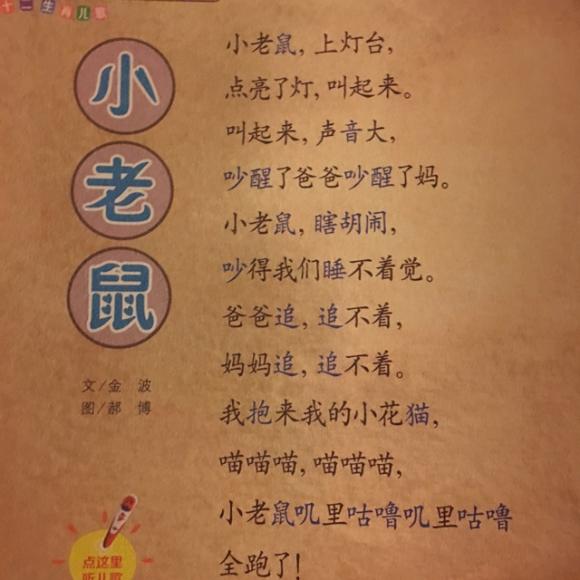 十二生肖儿歌
小老鼠
文/金 波
图/郝 博
小老鼠，上灯台，
点亮了灯，叫起来。
叫起来，声音大，
吵醒了爸爸吵醒了妈。
小老鼠，瞎胡闹，
吵得我们睡不着觉。
爸爸追，追不着，
妈妈追，追不着。
我抱来我的小花猫，
喵喵喵，喵喵喵，
小老鼠叽里咕噜叽里咕噜
全跑了！
点这里
听儿歌